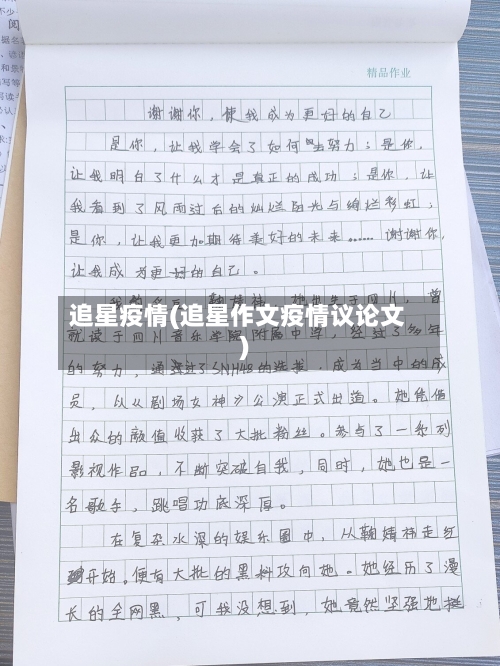 精品作业
谢谢你，使我成为更好的自己
是你，让我学会了如何去努力；是你，
让我明白了什么才是真正的成功；是你，让
我看到了风雨过后的灿烂阳光与绚烂彩虹；
是你，让我更加期待美好的未来……谢谢你，
让我成为更好的自己。
追星疫情(追星作文疫情议论文
)
就读于四川音乐学院附属中学，经过了多年
的努力，通过了SNH48的选拔，成为当中的成
员，以《剧场女神》公演正式出道。她凭借
出众的颜值收获了大批粉丝。参与了一系列
影视作品，不断突破自我，同时，她也是一
名歌手，跳唱功底深厚。
在复杂水深的娱乐圈中，从鞠婧祎走红
开始。便有大批的黑料攻向她。她经历了漫
长的全网黑，可我没想到，她竟然坚强地挺